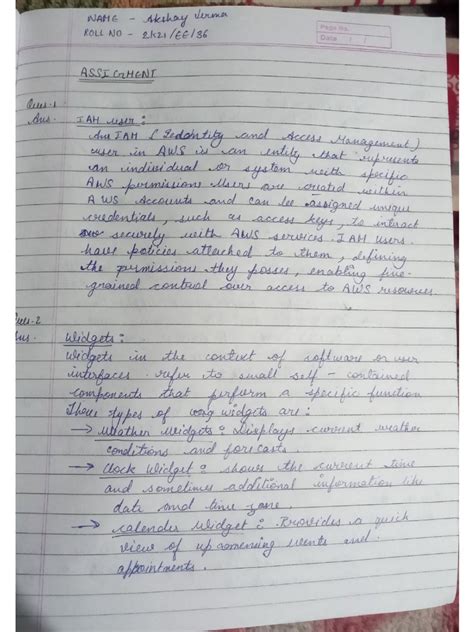 NAME - Akshay Verma
ROLL NO - 2K21/EE/36
Page No.
Date / /
ASSIGNMENT
Ques-1
Ans. IAM user:
An IAM (Idedntity and Access Management)
user in AWS is an entity that represents
an individual or system with specific
AWS permissions Users are created within
AWS Accounts and can be assigned unique
credentials, such as access keys, to interact
securely with AWS services. IAM users
have policies attached to them, defining
the permissions they posses, enabling fine-
grained control over access to AWS resources.
Ques-2
Ans. Widgets:
Widgets in the context of software or user
interfaces refer to small self-contained
components that perform a specific function
Three types of widgets are:
→ Weather Widgets: Displays current weather
conditions and forecasts.
→ Clock Widget: shows the current time
and sometimes additional information like
date and time zone.
→ Calender Widget: Provides a quick
view of upcomening events and
appointments.